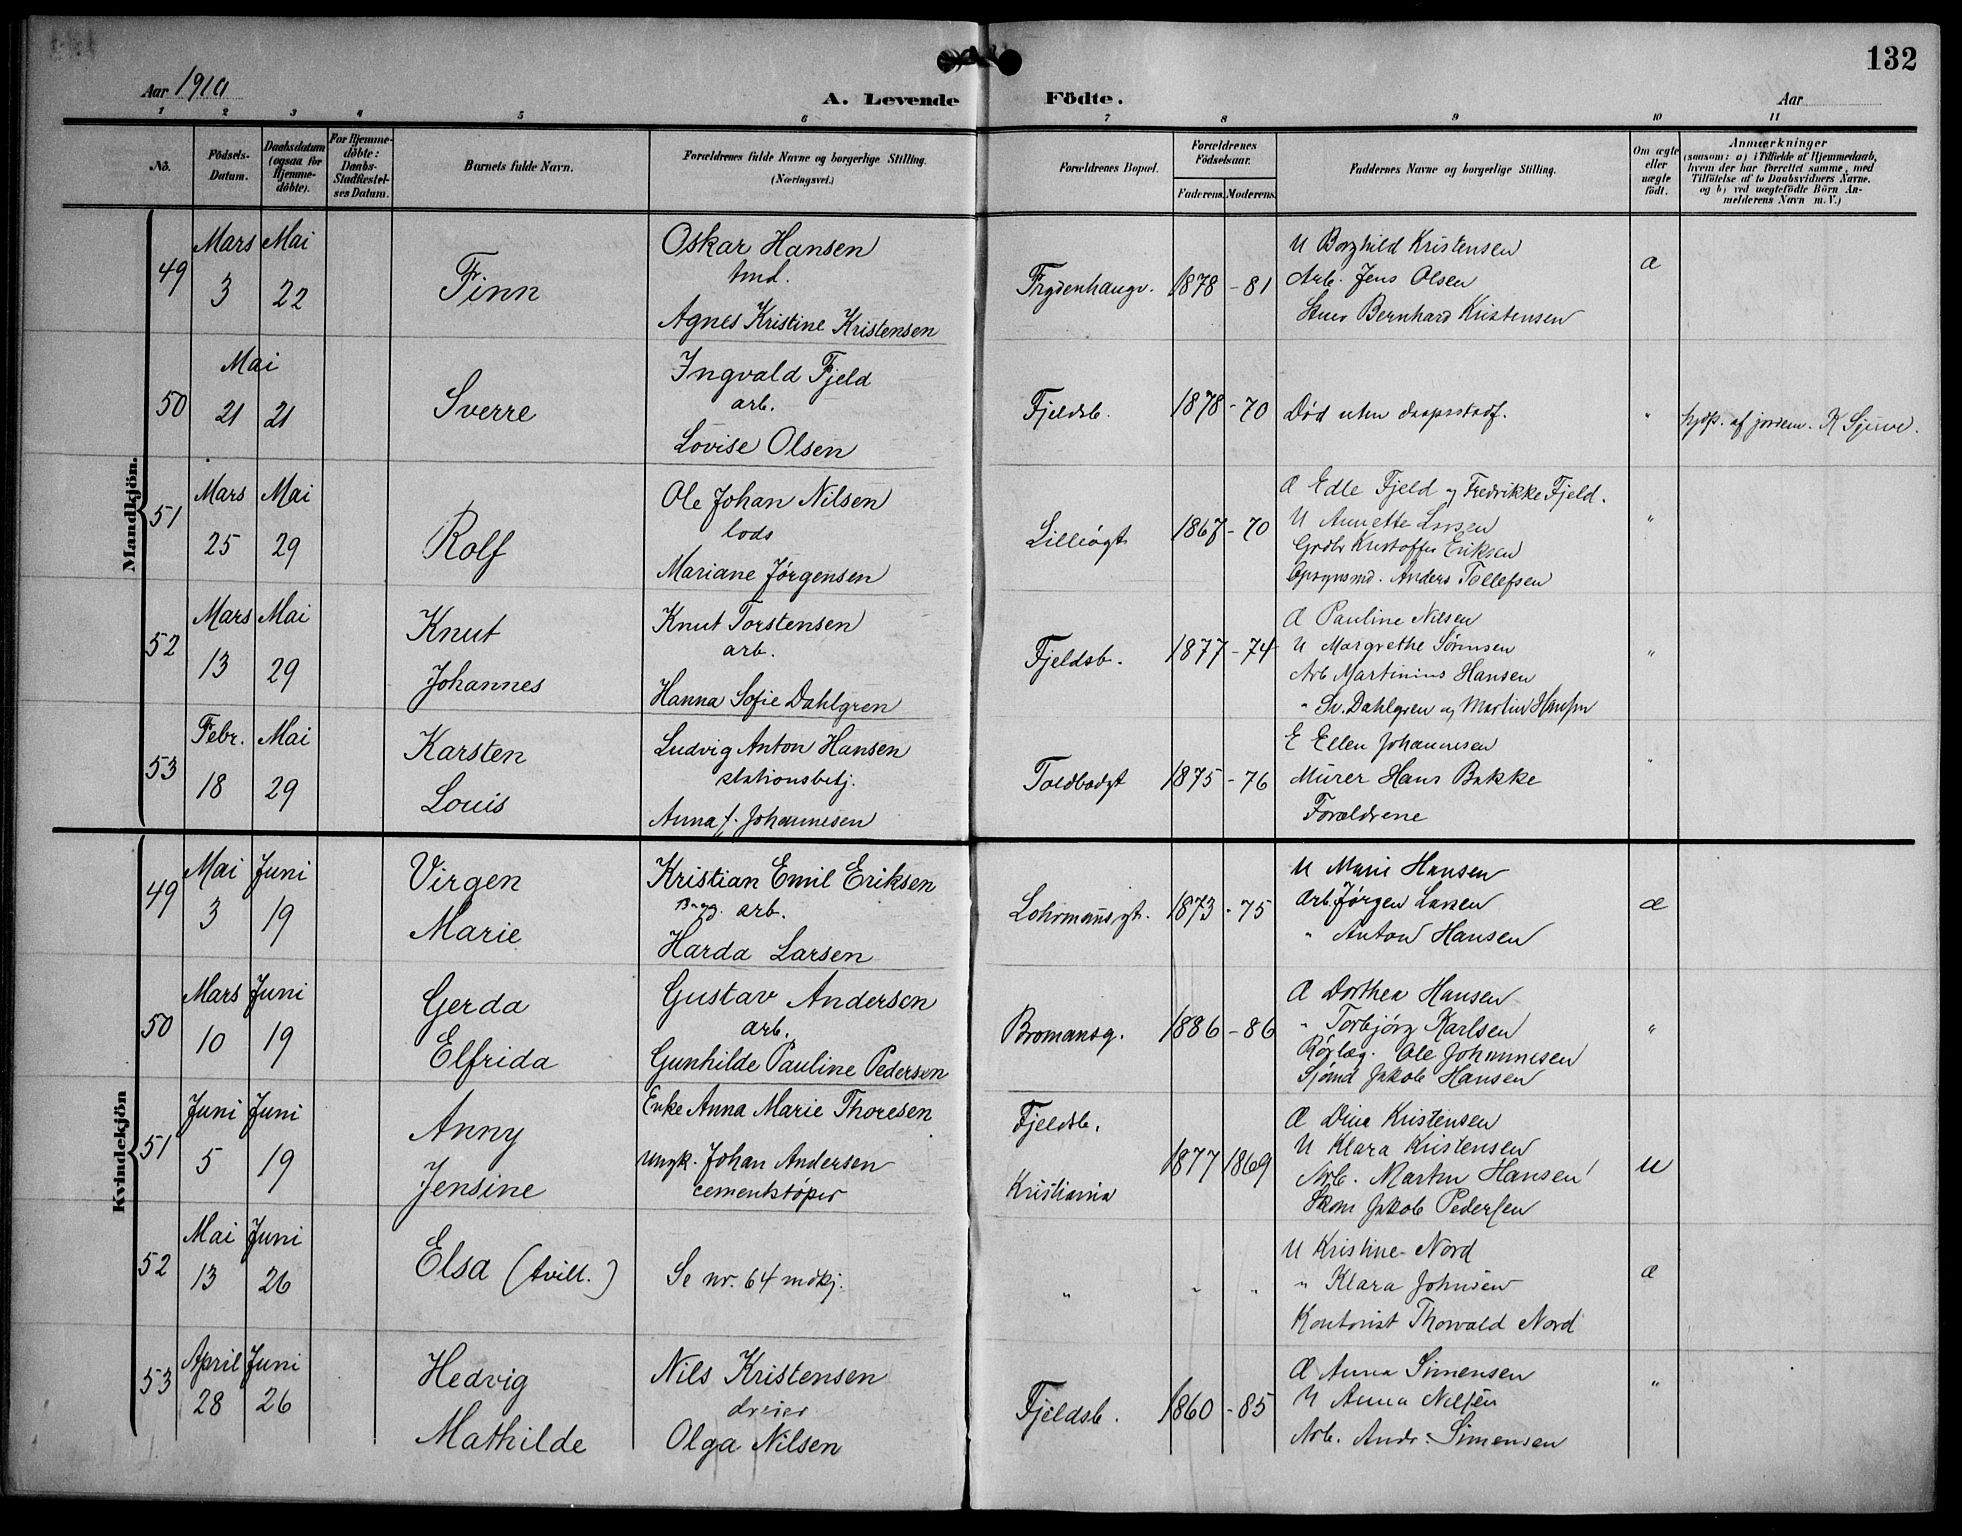 132
Aar 1910
A. Levende Födte.
Aar
1 2 3 4 5 6 7 8 9 10 11
No.
Födsels-Datum.
Daabsdatum (ogsaa for Hjemme-döbte).
For Hjemme-döbte: Daabs-Stadfæstel-ses Datum.
Barnets fulde Navn.
Forældrenes fulde Navne og borgerlige Stilling. (Næringsvei.)
Forældrenes Bopæl.
Forældrenes Födselsaar.
Faderens. Moderens.
Faddernes Navne og borgerlige Stilling.
Om ægte eller uægte födt.
Anmærkninger
(saasom: a) i Tilfælde af Hjemmedaab, hvem der har forrettet samme, med Tilföielse af to Daabsvidners Navne, og b) ved uægtefödte Börn An-melderens Navn m. V.)
Mandkjön.
49 Mars 3 Mai 22
Finn
Oskar Hansen
tmd.
Agnes Kristine Kristensen
Frydenhaugv. 1878 - 81
U Borghild Kristensen
Arb. Jens Olsen
Bernhard Kristensen
Æ
50 Mai 21 21
Sverre
Ingvald Fjeld
arb.
Lovise Olsen
Fjeldsb. 1878 - 70
Død uten daapsstadf.
"
hjdp. af jordem. K
51 Mars 25 Mai 29
Rolf
Ole Johan Nilsen
lods
Mariane Jørgensen
Lilleøgt 1867 - 70
Æ Edle Fjeld og Fredrikke Fjeld.
U Annette Larsen
Grdbr Kristoffer Eriksen
Opsynsmd. Anders Tollefsen
"
52 Mars 13 Mai 29
Knut
Johannes
Knut Torstensen
arb.
Hanna Sofie Dahlgren
Fjeldsb. 1877 - 74
Æ Pauline Nilsen
U Margrethe Sørensen
Arb Martinius Hansen
" Dahlgren og Martin Hansen
"
53 Febr. 18 Mai 29
Karsten
Louis
Ludvig Anton Hansen
stationsbetj.
Anna f. Johannesen
Toldbodgt 1875 - 76
E Ellen Johannesen
Murer Hans Bakke
Forældrene
"
Kvindekjön
49 Mai 3 Juni 19
Virgen
Marie
Kristian Emil Eriksen
arb.
Harda Larsen
Lohrmansgt. 1873 - 75
U Marie Hansen
Arb. Jørgen Larsen
" Anton Hansen
Æ
50 Mars 10 Juni 19
Gerda
Elfrida
Gustav Andersen
arb.
Gunhilde Pauline Pedersen
Bromansg. 1886 - 86
Æ Dorthea Hansen
" Torbjørg Karlsen
Rørlæg. Ole Johannesen
Sjømd Jakob Hansen
"
51 Juni 5 Juni 19
Anny
Jensine
Enke Anna Marie Thoresen
Ungk. Johan Andersen
cementstøper
Fjeldsb.
Kristiania
1877 1869
Æ Dina Kristensen
U Klara Kristensen
Arb. Martin Hansen
Skom Jakob Pedersen
U
52 Mai 13 Juni 26
Elsa (tvill.)
Se nr. 64 mdkj.
" " "
U Kristine Nord
" Klara Johnsen
Kontorist Thorvald Nord
Æ
53 April 28 Juni 26
Hedvig
Mathilde
Nils Kristensen
dreier
Olga Nilsen
Fjeldsb. 1860 - 85
Æ Anna Simensen
U Anna Nilsen
Arb. Andr. Simensen
"